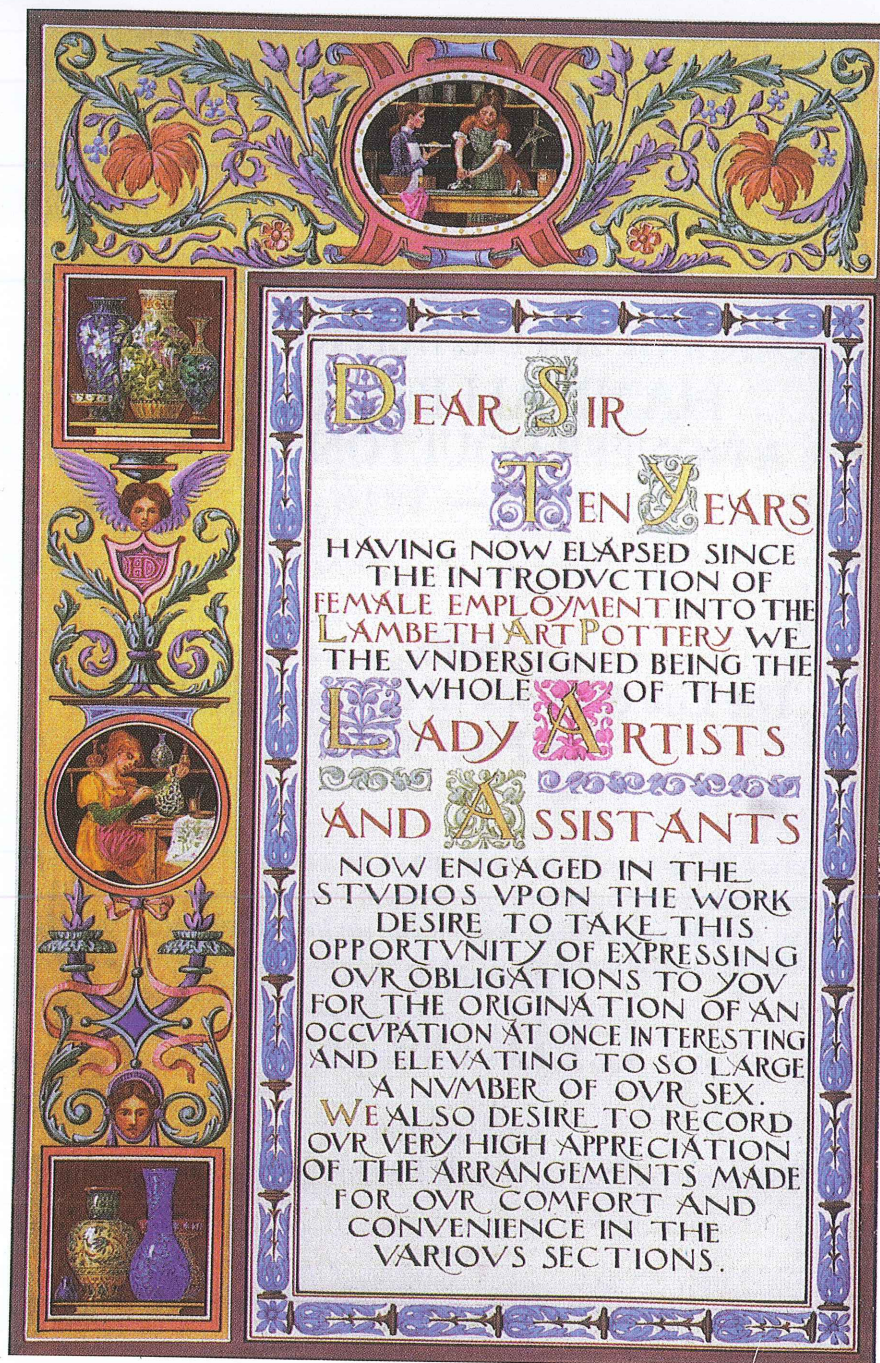 DEAR SIR
TEN YEARS
HAVING NOW ELAPSED SINCE
THE INTRODVCTION OF
FEMALE EMPLOYMENT INTO THE
LAMBETH ART POTTERY WE
THE VNDERSIGNED BEING THE
WHOLE OF THE
LADY ARTISTS
AND ASSISTANTS
NOW ENGAGED IN THE
STVDIOS VPON THE WORK
DESIRE TO TAKE THIS
OPPORTVNITY OF EXPRESSING
OVR OBLIGATIONS TO YOV
FOR THE ORIGINATION OF AN
OCCVPATION AT ONCE INTERESTING
AND ELEVATING TO SO LARGE
A NVMBER OF OVR SEX.
WE ALSO DESIRE TO RECORD
OVR VERY HIGH APPRECIATION
OF THE ARRANGEMENTS MADE
FOR OVR COMFORT AND
CONVENIENCE IN THE
VARIOVS SECTIONS.